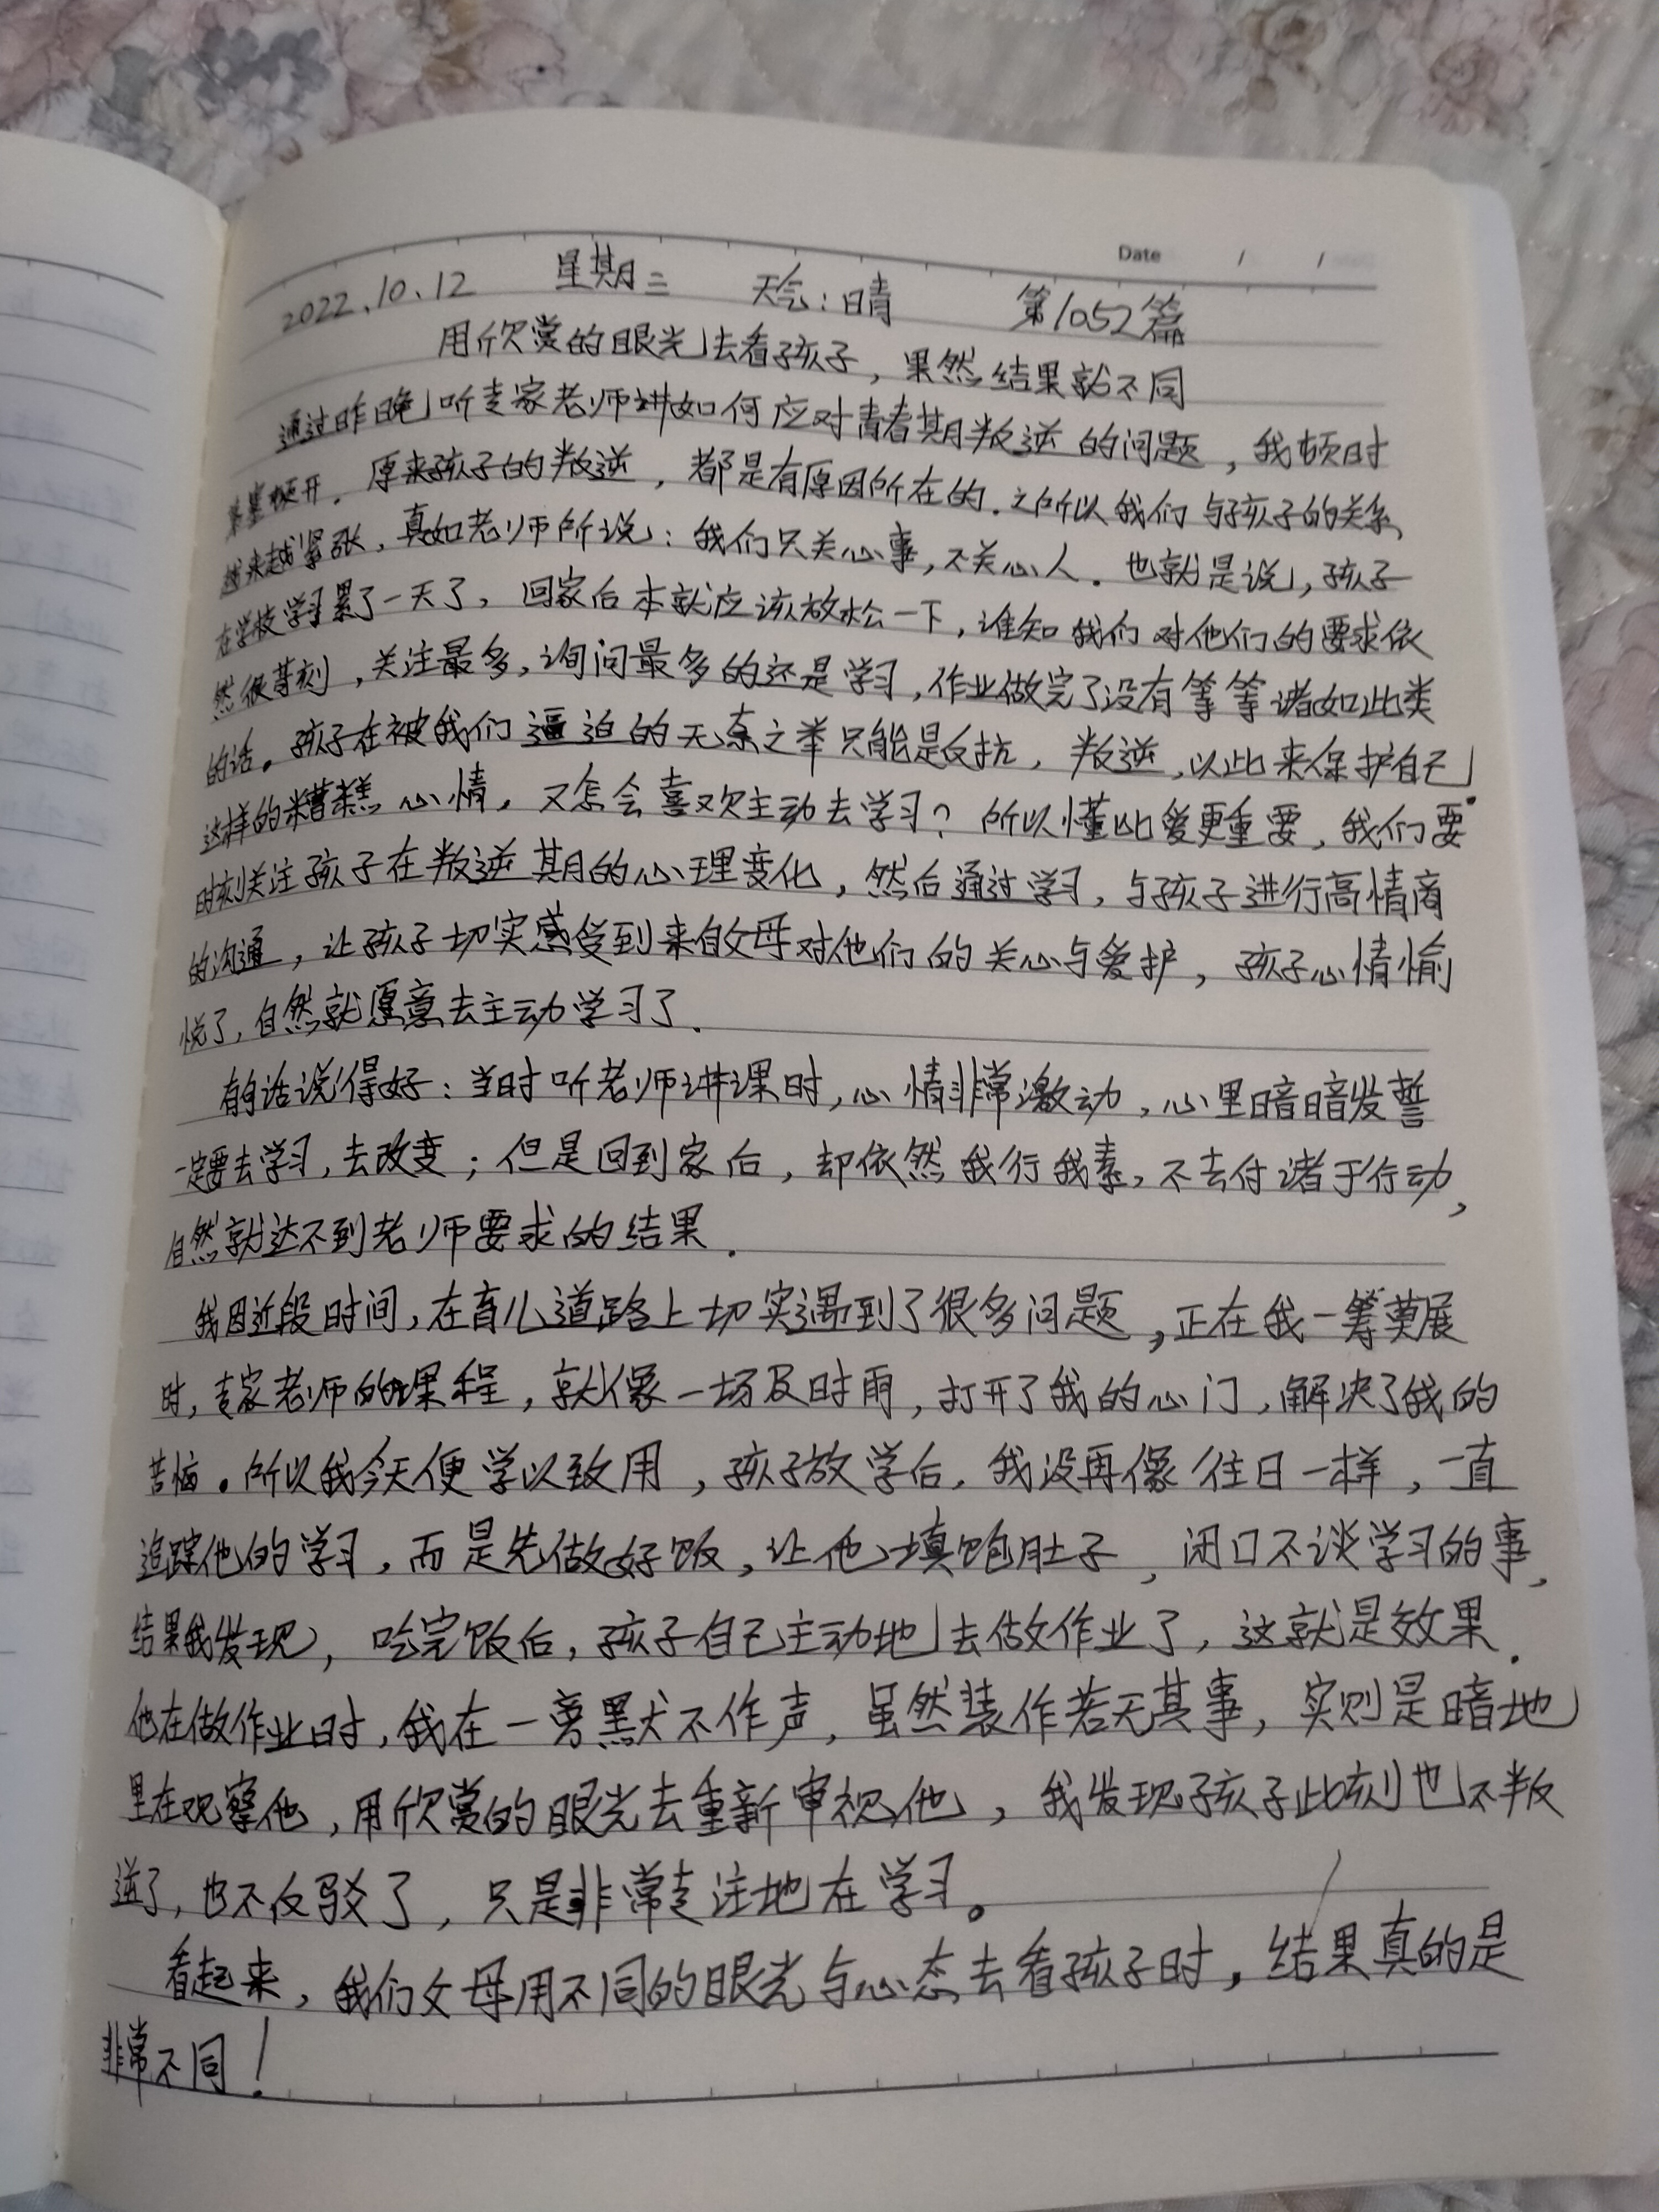 Date / /
2022.10.12 星期三 天气:晴 第1052篇
用欣赏的眼光去看孩子,果然结果就不同
通过昨晚听专家老师讲如何应对青春期叛逆的问题,我顿时
茅塞顿开。原来孩子的叛逆,都是有原因所在的.之所以我们与孩子的关系
越来越紧张,真如老师所说:我们只关心事,不关心人.也就是说,孩子
在学校学习累了一天了,回家后本就应该放松一下,谁知我们对他们的要求依
然很苛刻,关注最多,询问最多的还是学习,作业做完了没有等等诸如此类
的话。孩子在被我们逼迫的无奈之举只能是反抗,叛逆,以此来保护自己.
这样的糟糕心情,又怎会喜欢主动去学习?所以懂比爱更重要,我们要
时刻关注孩子在叛逆期的心理变化,然后通过学习,与孩子进行高情商
的沟通,让孩子切实感受到来自父母对他们的关心与爱护,孩子心情愉
悦了,自然就愿意去主动学习了.
有的话说得好:当时听老师讲课时,心情非常激动,心里暗暗发誓
一定要去学习,去改变;但是回到家后,却依然我行我素,不去付诸于行动,
自然就达不到老师要求的结果.
我因近段时间,在育儿道路上切实遇到了很多问题,正在我一筹莫展
时,专家老师的课程,就像一场及时雨,打开了我的心门,解决了我的
苦恼。所以我今天便学以致用,孩子放学后,我没再像往日一样,一直
追踪他的学习,而是先做好饭,让他填饱肚子,闭口不谈学习的事,
结果我发现,吃完饭后,孩子自己主动地去做作业了,这就是效果.
他在做作业时,我在一旁默不作声,虽然装作若无其事,实则是暗地
里在观察他,用欣赏的眼光去重新审视他,我发现孩子此刻也不叛
逆了,也不反驳了,只是非常专注地在学习。
看起来,我们父母用不同的眼光与心态去看孩子时,结果真的是
非常不同!